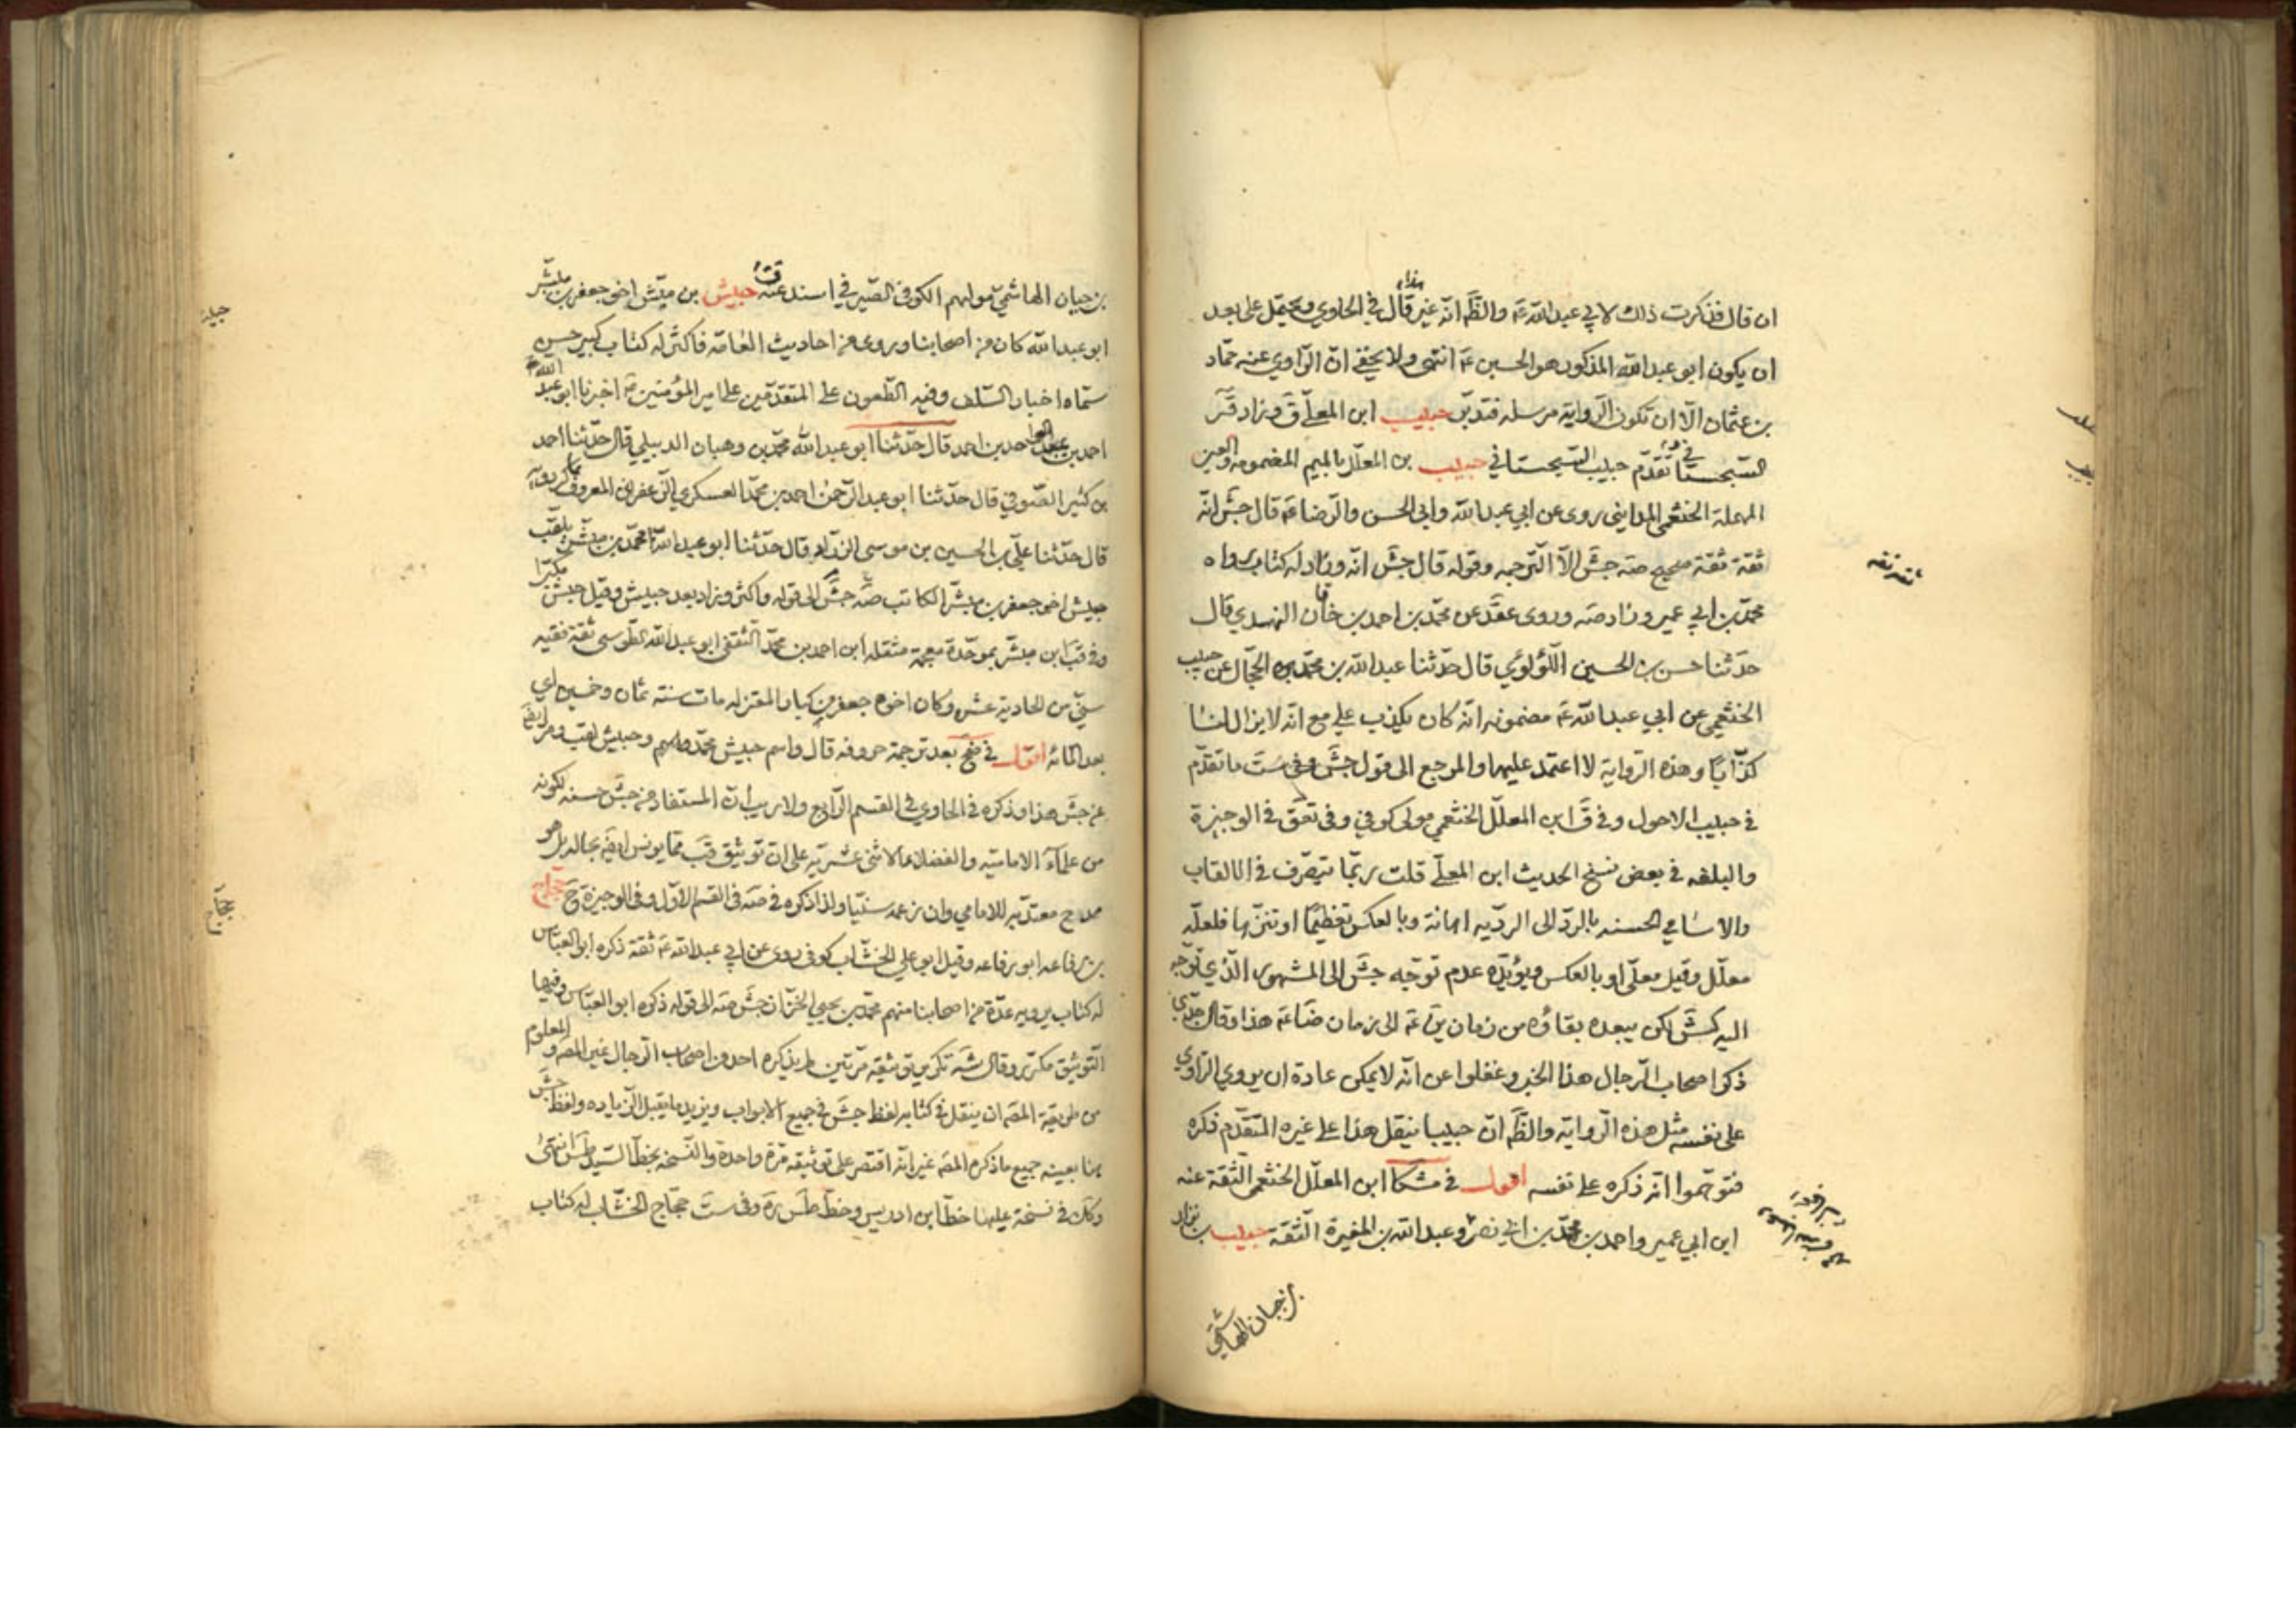 ان قال فذكرت ذلك لابي عبدالله ع والظ انه غير هذا قال في الحاوي ويحتمل على بعد
ان يكون ابو عبدالله المذكور هو الحسين ع انتهى ولا يخفى ان الراوي عنه حماد
بن عثمان الا ان تكون الرواية مرسلة فتدبر حبيب ابن المعلى ق وزاد قر
السجستاني تقدم في حبيب السجستاني حبيب بن المعلل بالميم المضمومة والعين
المهملة الخثعمي المدايني روى عن ابي عبدالله وابي الحسن والرضا ع قال جش انه
ثقة ثقة صحيح صه جش الا الترجمة وقوله قال جش انه وزاد له كتاب رواه
محمد بن ابي عمير وزاد صه وروى عقد عن محمد بن احمد بن خاقان النهدي قال
حدثنا حسن بن الحسين اللؤلوي قال حدثنا عبدالله بن محمد الحجال عن حبيب
الخثعمي عن ابي عبدالله ع مضمونه انه كان يكذب علي مع انه لا يزال لنا
كذابا وهذه الرواية لا اعتمد عليها والمرجع الى قول جش وفي ست ما تقدم
في حبيب الاحول وفي ق ابن المعلل الخثعمي مولى كوفي وفي تعق في الوجيزة
والبلغة في بعض نسخ الحديث ابن المعلى قلت ربما يتصرف في الالقاب
والاسامي الحسنه بالرد الى الردية اهانة وبالعكس تعظيما او تنزها فلعله
معلل وقيل معلى او بالعكس ويؤيده عدم توجه جش الى المشهور الذي توجه
اليه كش لكن يبعده بقاؤه من زمان ين ع الى زمان ضا ع هذا وقال جدي
ذكر اصحاب الرجال هذا الخبر وغفلوا عن انه لا يمكن عادة ان يروي الراوي
على نفسه مثل هذه الرواية والظ ان حبيبا ينقل هذا على غيره المتقدم ذكره
فتوهموا انه ذكره على نفسه اقول في مشكا ابن المعلل الخثعمي الثقة عنه
ابن ابي عمير واحمد بن محمد بن ابي نصر وعبدالله بن المغيرة الثقة حبيب بن نزار
بن حيان الهاشمي
ثقة ثقة
بن حيان الهاشمي مولهم الكوفي الصيرفي اسند عنه ق حبيش بن مبشر اخو جعفر بن مبشر
ابو عبدالله كان من اصحابنا وروى من احاديث العامة فاكثر له كتاب كبير حسن
سماه اخبار السلف وفيه الطعون على المتقدمين على امير المؤمنين ع اخبرنا ابو عبد الله
احمد بن عبد الواحد بن احمد قال حدثنا ابو عبدالله محمد بن وهبان الدبيلي قال حدثنا احمد
بن كثير الصوفي قال حدثنا ابو عبدالرحمن احمد بن محمد العسكري الزعفراني المعروف بماكردويه
قال حدثنا علي بن الحسين بن موسى الزراد قال حدثنا ابو عبدالله محمد بن مبشر يلقب
حبيش اخو جعفر بن مبشر الكاتب صه جش الى قوله واكثر وزاد بعد حبيش وقيل حبش مكبرا
وفي قب ابن مبشر بموحدة معجمة مثقلة ابن احمد بن محمد الثقفي ابو عبدالله الطوسي ثقة فقيه
سني من الحادية عشر وكان اخوه جعفر من كبار المعتزلة مات سنة ثمان وخمسين اي
بعد المائة اقول في ضح بعد ترجمة حروفه قال واسم حبيش محمد وحبيش لقب ومر ايضا
عن جش هذا وذكره في الحاوي في القسم الرابع ولا ريب ان المستفاد من جش حسنه لكونه
من علماء الامامية والفضلاء الاثنى عشرية على ان توثيق قب مما يونس اليه بحاله بل هو
مدح معتد به للامامي وان زعمه سنيا ولذا ذكره في صه في القسم الاول وفي الوجيزة ح حجاج
بن رفاعه ابو رفاعه وقيل ابو علي الخشاب كوفي روى عن ابي عبدالله ع ثقة ذكره ابو العباس
له كتاب يرويه عدة من اصحابنا منهم محمد بن يحيى الخزاز جش صه الى قوله ذكره ابو العباس وفيها
التوثيق مكرر وقال شه تكرير توثيقه مرتين لم يذكره احد من اصحاب الرجال غير المص والمعلوم
من طريقة المص ان ينقل في كتابه لفظ جش في جميع الابواب ويزيد ما يقبل الزياده ولفظ جش
هنا بعينه جميع ما ذكره المص غير انه اقتصر على توثيقه مرة واحدة والنسخة بخط السيد طس انتهى
وكك في نسخة عليها خط ابن ادريس وخط طس ره وفي ست حجاج الخشاب له كتاب